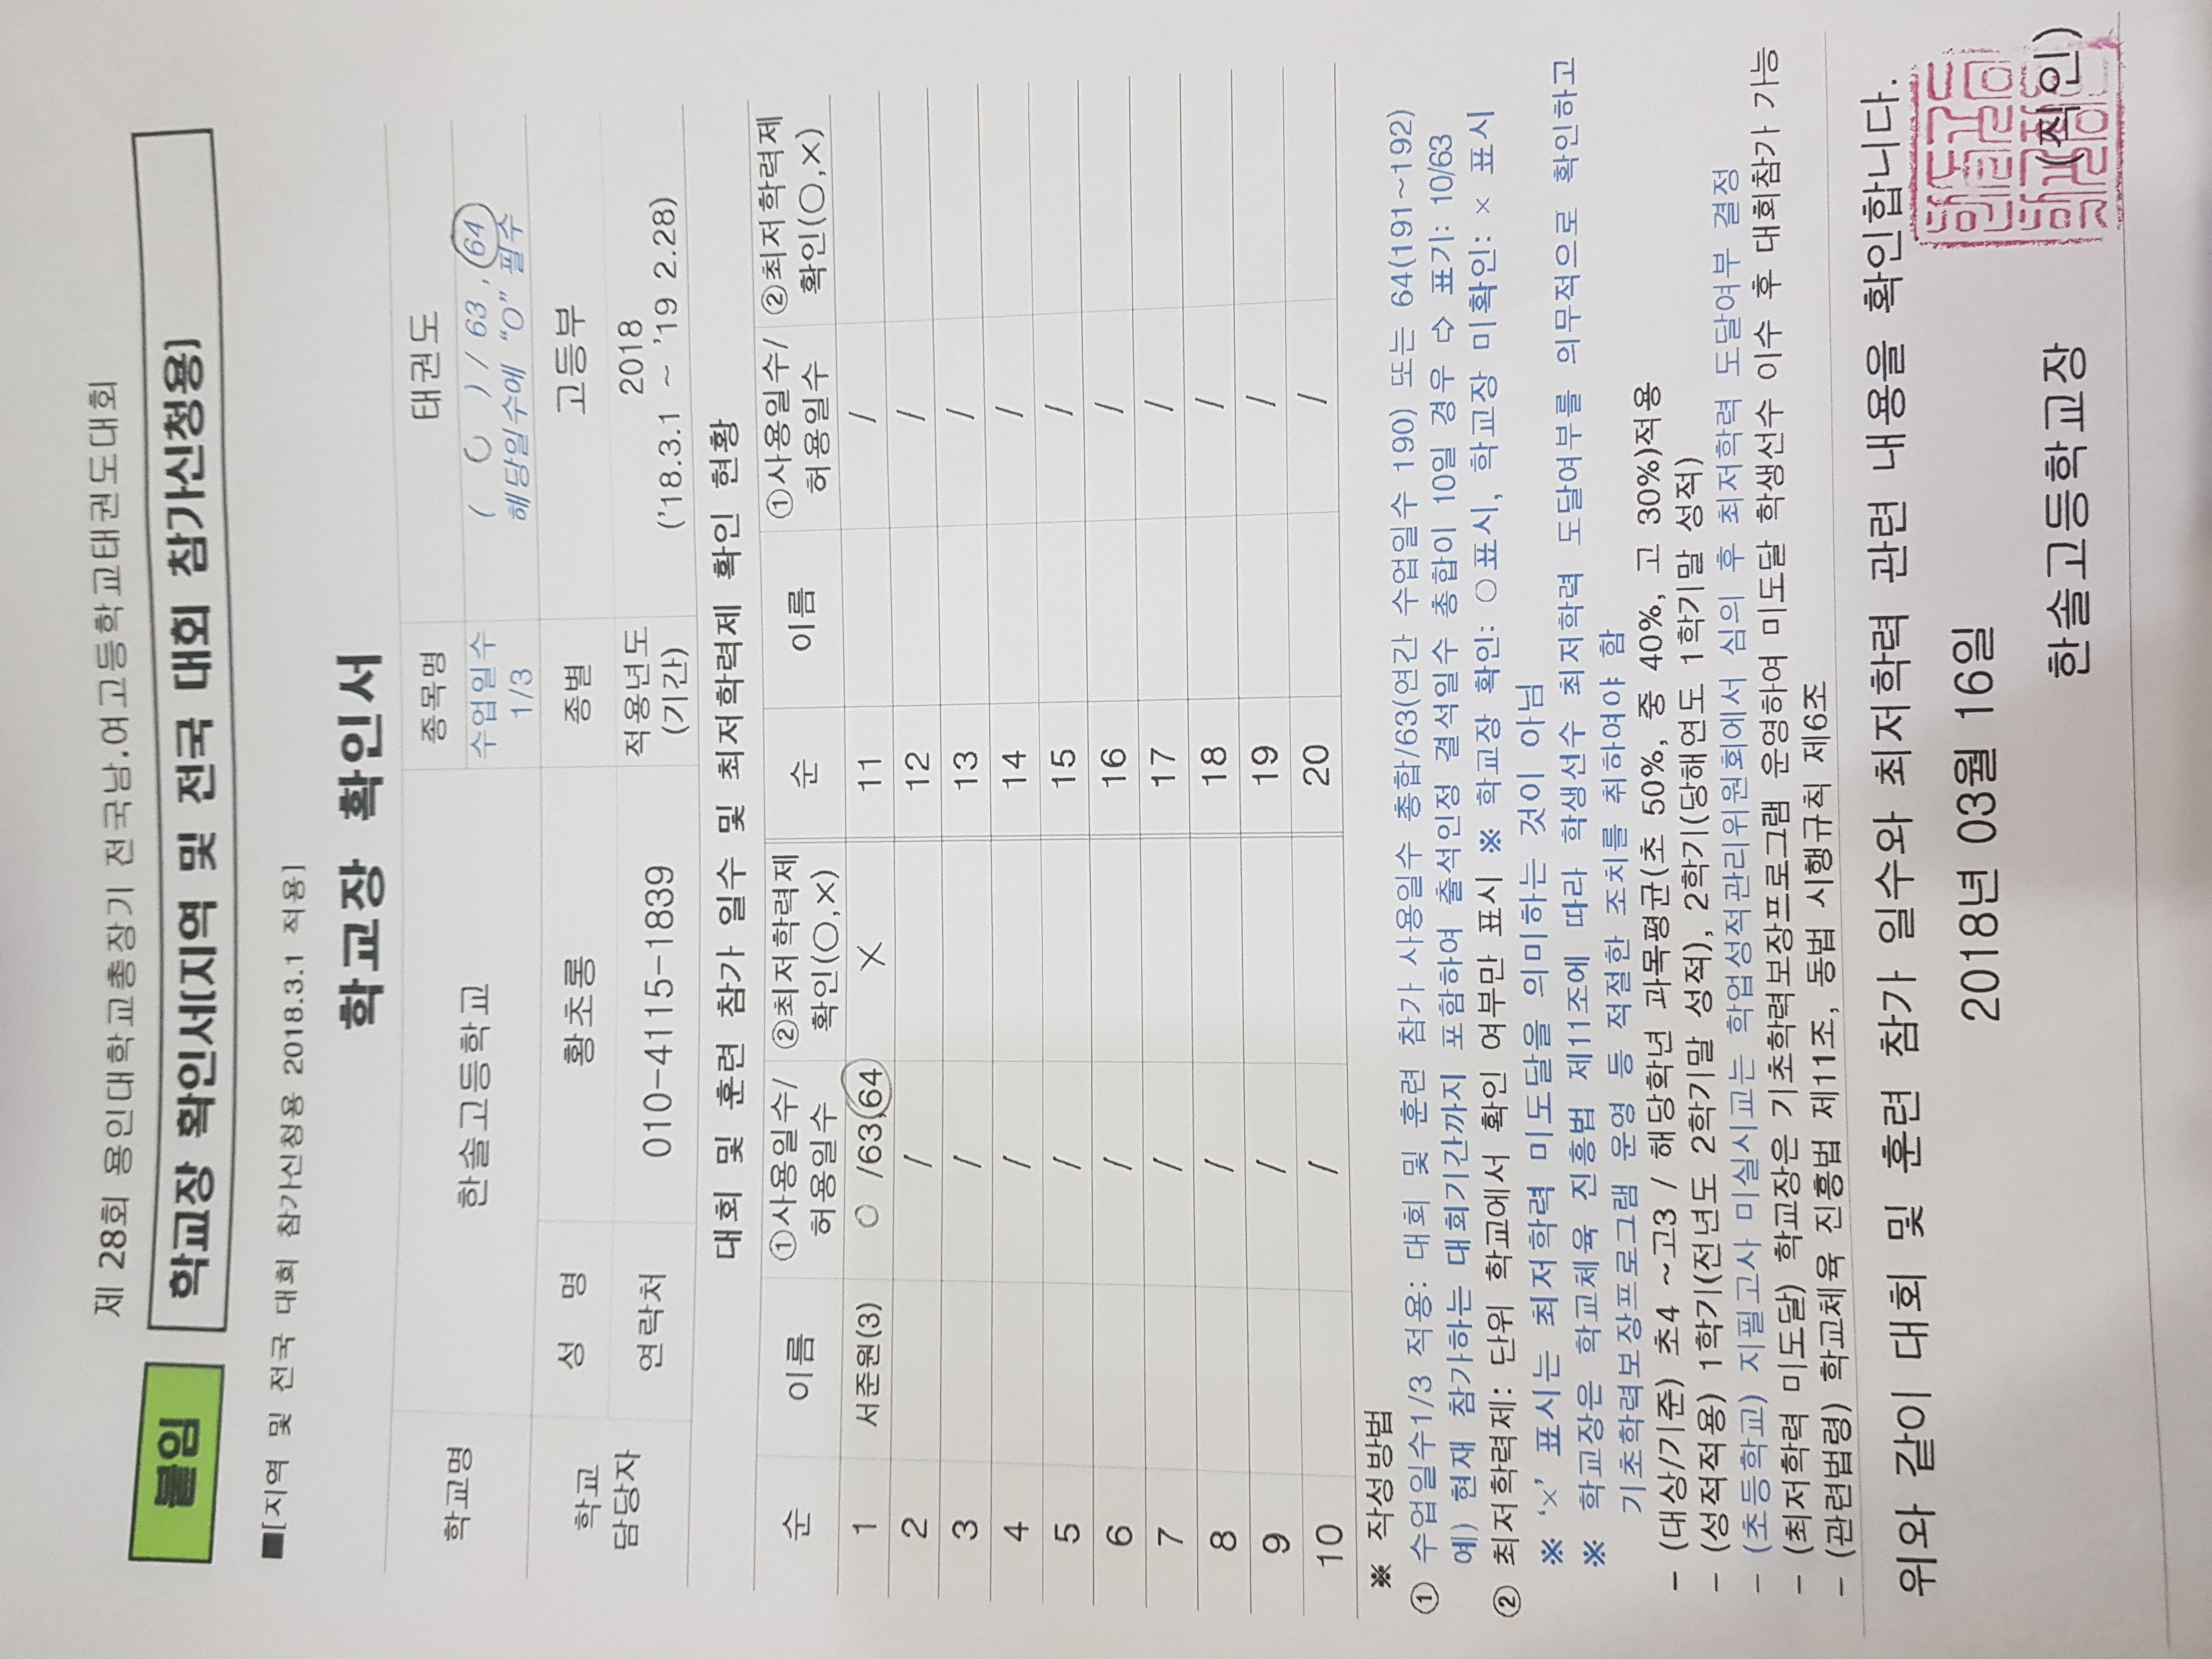 제 28회 용인대학교총장기 전국남.여고등학교태권도대회
붙임 학교장 확인서[지역 및 전국 대회 참가신청용]
■[지역 및 전국 대회 참가신청용 2018.3.1 적용]
학교장 확인서
학교명 한솔고등학교 종목명 태권도
수업일수 1/3 ( ○ ) / 63 , 64
해당일수에 "O" 필수
학교 담당자 성 명 황초롱 종별 고등부
연락처 010-4115-1839 적용년도 (기간) 2018
('18.3.1 ~ '19 2.28)
대회 및 훈련 참가 일수 및 최저학력제 확인 현황
순 이름 ①사용일수/허용일수 ②최저학력제 확인(○,×) 순 이름 ①사용일수/허용일수 ②최저학력제 확인(○,×)
1 서준원(3) ○ /63,64 × 11 /
2 / 12 /
3 / 13 /
4 / 14 /
5 / 15 /
6 / 16 /
7 / 17 /
8 / 18 /
9 / 19 /
10 / 20 /
※ 작성방법
① 수업일수1/3 적용: 대회 및 훈련 참가 사용일수 총합/63(연간 수업일수 190) 또는 64(191~192)
예) 현재 참가하는 대회기간까지 포함하여 출석인정 결석일수 총합이 10일 경우 ⇨ 표기: 10/63
② 최저학력제: 단위 학교에서 확인 여부만 표시 ※ 학교장 확인: ○표시, 학교장 미확인: × 표시
※ '×' 표시는 최저학력 미도달을 의미하는 것이 아님
※ 학교장은 학교체육 진흥법 제11조에 따라 학생선수 최저학력 도달여부를 의무적으로 확인하고
기초학력보장프로그램 운영 등 적절한 조치를 취하여야 함
- (대상/기준) 초4 ~고3 / 해당학년 과목평균(초 50%, 중 40%, 고 30%)적용
- (성적적용) 1학기(전년도 2학기말 성적), 2학기(당해연도 1학기말 성적)
- (초등학교) 지필고사 미실시교는 학업성적관리위원회에서 심의 후 최저학력 도달여부 결정
- (최저학력 미도달) 학교장은 기초학력보장프로그램 운영하여 미도달 학생선수 이수 후 대회참가 가능
- (관련법령) 학교체육 진흥법 제11조, 동법 시행규칙 제6조
위와 같이 대회 및 훈련 참가 일수와 최저학력 관련 내용을 확인합니다.
2018년 03월 16일
한솔고등학교장 (직인)